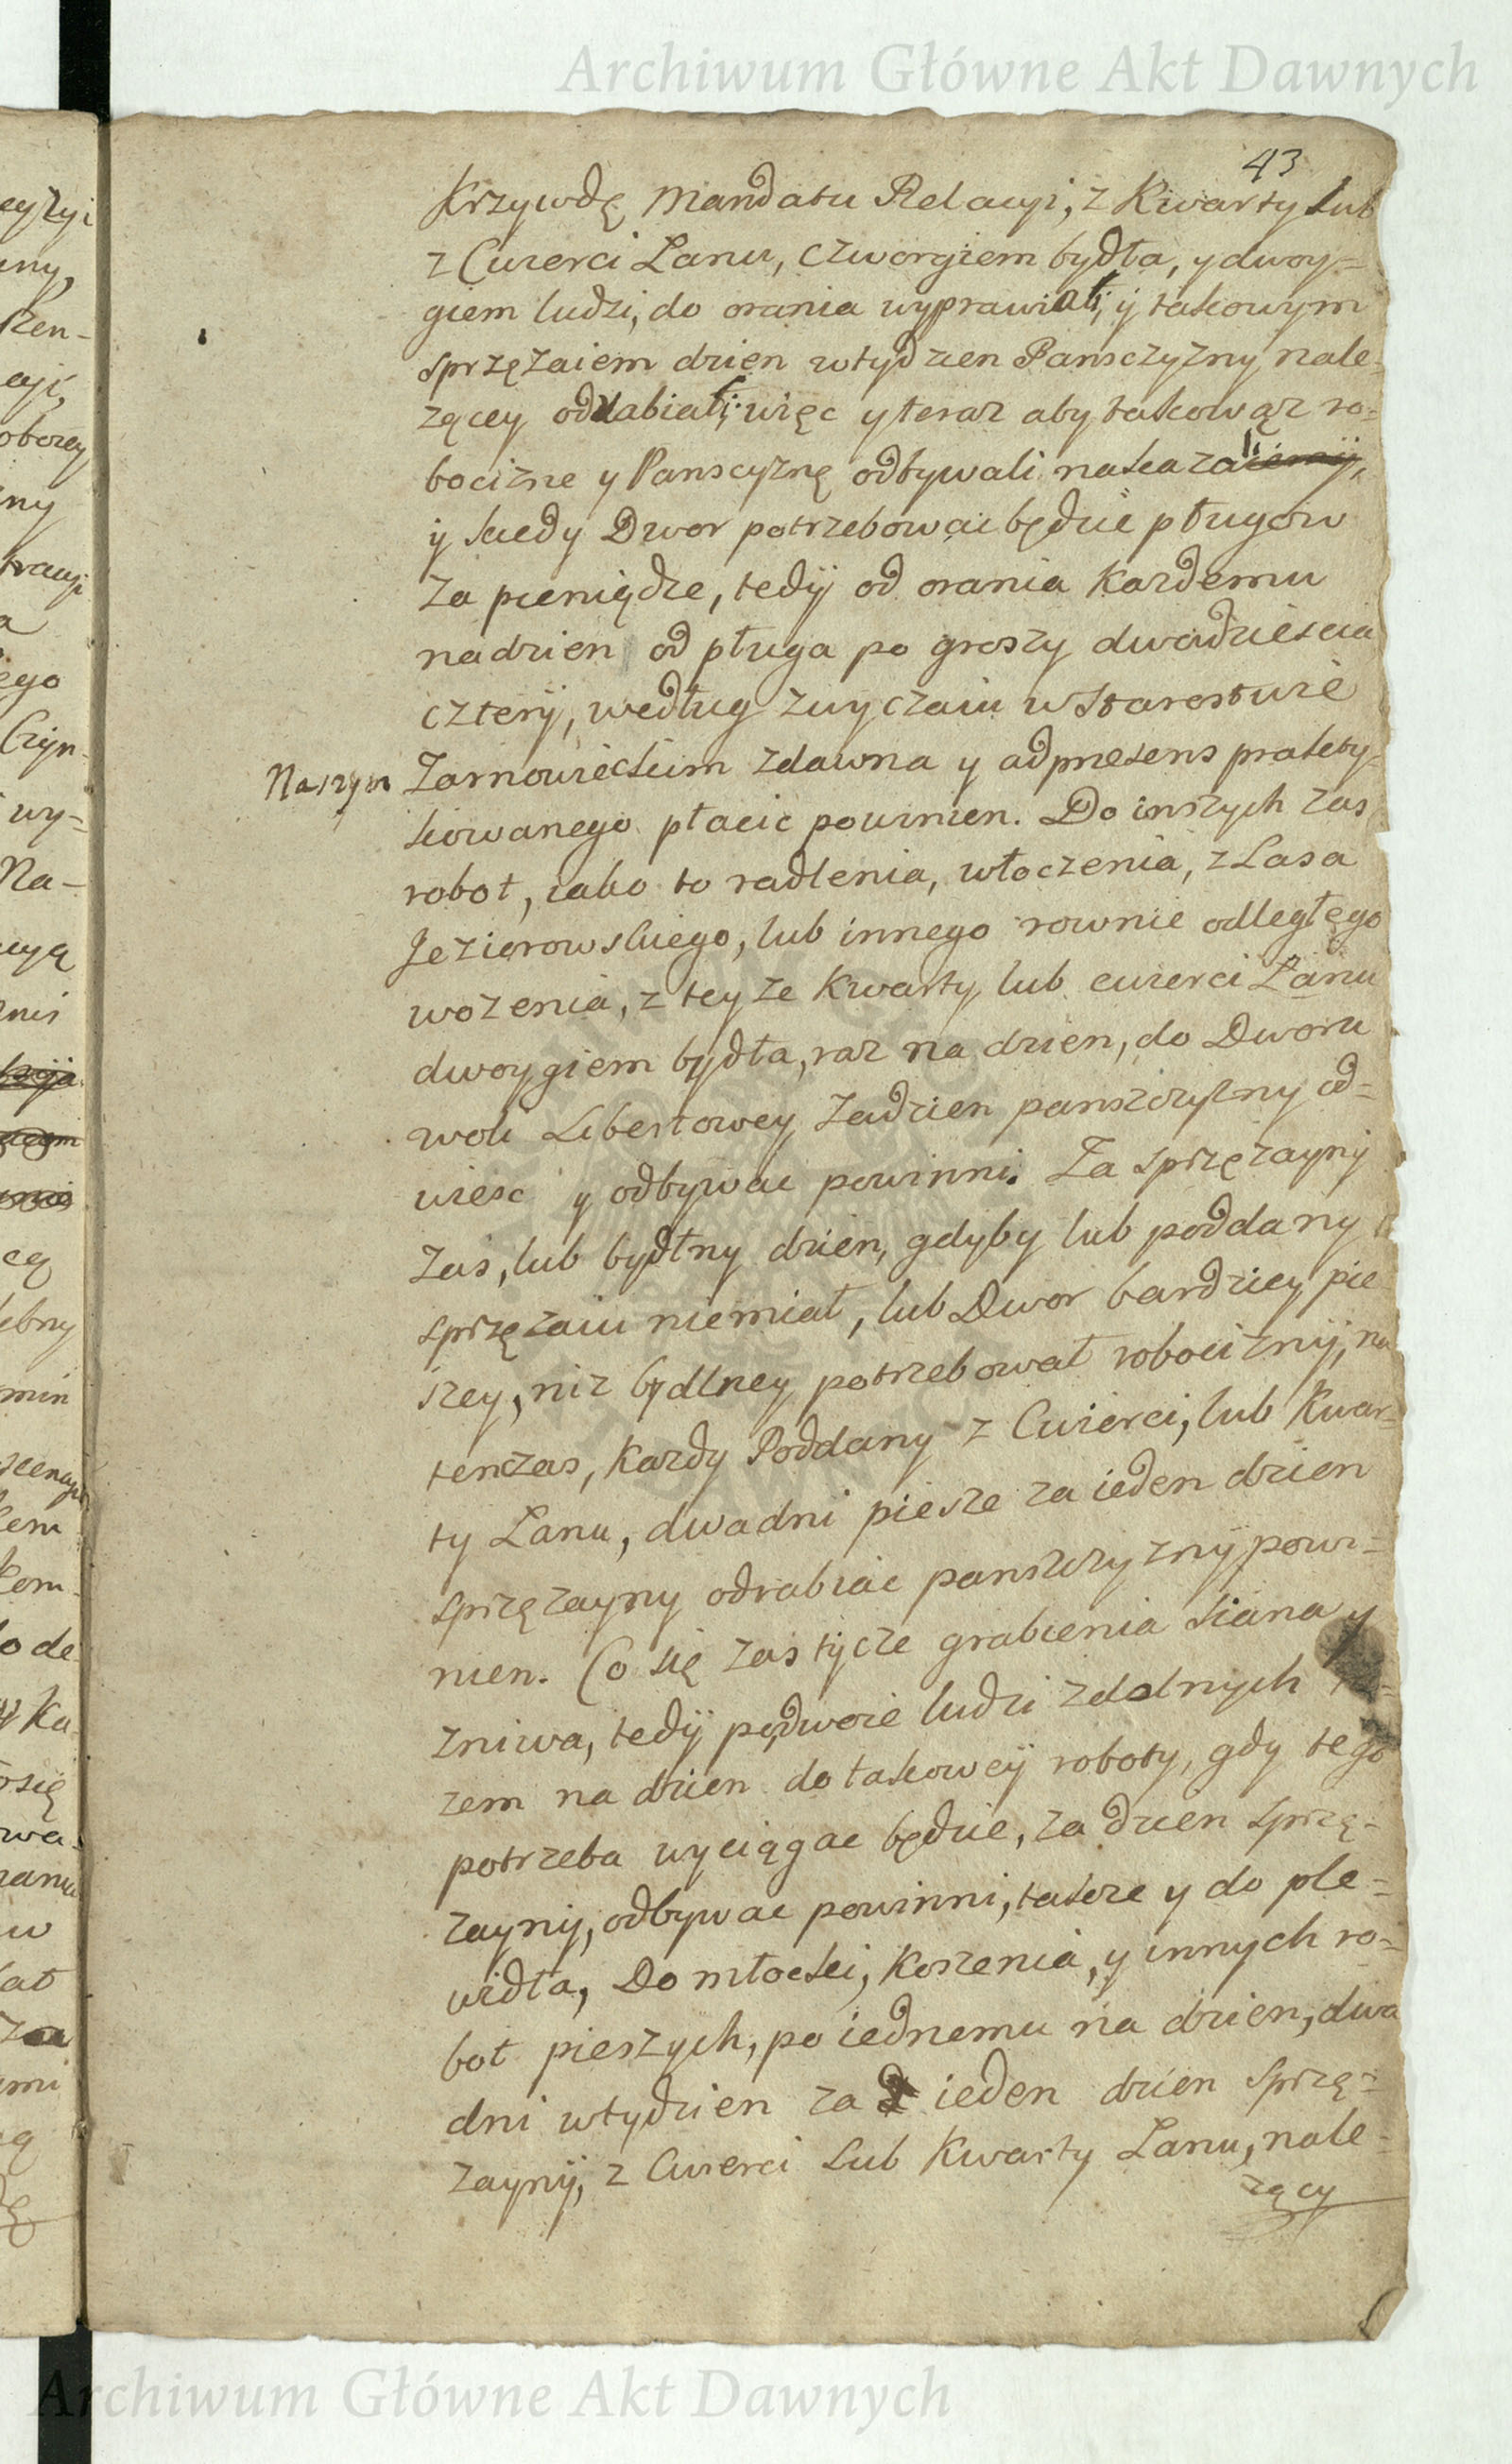 Archiwum Główne Akt Dawnych
43
Krzywdę Mandatu Relacyi, z Kwarty lub
z Cwierci Łanu, czworgiem bydła, y dwoy=
giem ludzi, do orania wyprawiali, y takowym
sprzężaiem dzien wtydzien Pansczyzny nale-
zącey odrabiali: więc y teraz aby takowąz ro=
bocizne y Panscyznę odbywali nakazali
y kiedy Dwor potrzebowac będzie pługow
za pieniądze, tedÿ od orania Kazdemu
nadzien od pługa po groszy dwadziescia
czterÿ, według zwyczaiu w Starostwie
Naszym Zarnowieckim zdawna y adpresens prakty-
kowanego płacic powinien. Do inszych zas
robot, iako to radlenia, włoczenia, z Lasa
Jeziorowskiego, lub innego rownie odległego
wozenia, z teyze Kwarty lub cwierci Łanu
dwoygiem bydła, raz na dzien, do Dworu
woli Libertowey zadzien panszczyzny od=
wiesc y odbywac powinni. Za sprzęzaynÿ
zas, lub bydłny dzien, gdyby lub poddany
sprzęzaiu niemiał, lub Dwor bardziey pie
szey, niz bydlney potrzebował robociznÿ, na
tenczas, Kazdy Poddany z Cwierci, lub Kwar=
ty Łanu, dwadni piesze za ieden dzien
sprzęzayny odrabiac panszczyznÿ powi=
nien. Co się zas tÿcze grabienia siana y
zniwa, tedÿ podwoie ludzi zdolnych ra=
zem na dzien do takowej roboty, gdy tego
potrzeba wyciągac będzie, za dzien sprzę-
zaynÿ, odbywac powinni, takze y do ple=
widła, Do młocki, Koszenia, y innych ro=
bot pieszych, po iednemu na dzien, dwa
dni wtydzien za ieden dzien sprzę=
zaynÿ, z Cwierci lub Kwarty Łanu, nale=
zący
Archiwum Główne Akt Dawnych